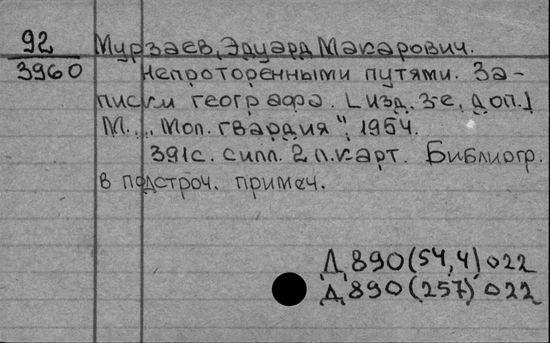 92
3960
Мурзаев, Эдуард Макарович.
Непроторенными путями. За-
писки географа. [Изд. 3-е, доп.]
М., „Мол. гвардия", 1954.
391с. силл. 2 л. карт. Библиогр.
в подстроч. примеч.
Д 890(54,4) о22
Д 890(257) о22